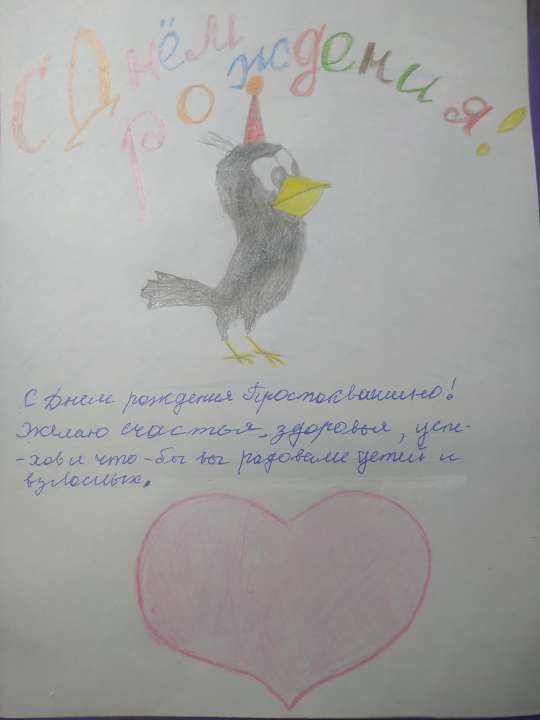 С Днём
рождения!
С Днем рождения Простоквашино!
Желаю счастья, здоровья, успе-
-хов и что-бы вы радовали детей и
взрослых.